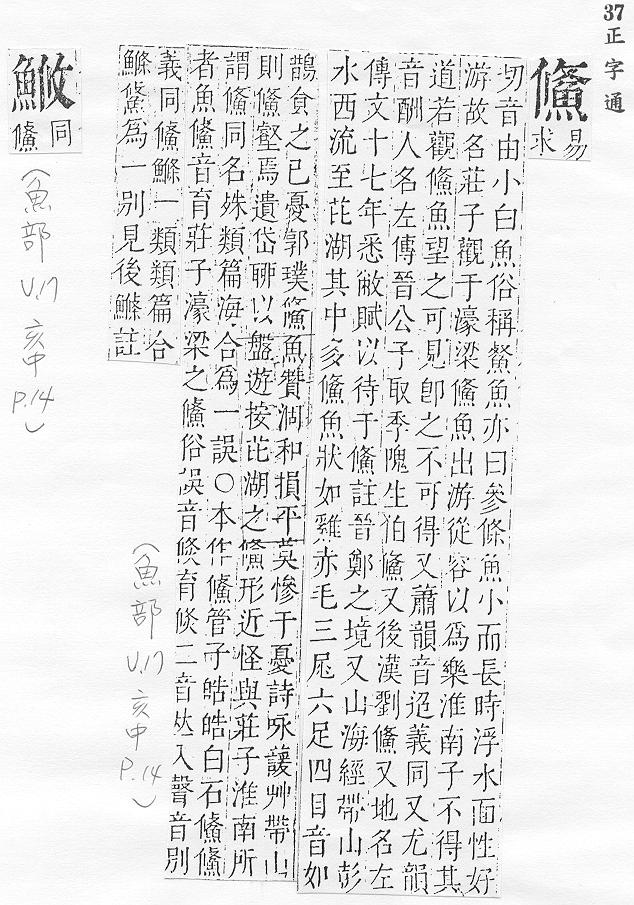 37
正字通
鯈
易求
切音由小白魚俗稱䱗魚亦曰參條魚小而長時浮水面性好
游故名莊子觀于濠梁鯈魚出游從容以為樂淮南子不得其
道若觀鯈魚望之可見卽之不可得又蕭韻音迢義同又尤韻
音酬人名左傳晉公子取季隗生伯鯈又後漢劉鯈又地名左
傳文十七年悉敝賦以待于鯈註晉鄭之境又山海經帶山彭
水西流至芘湖其中多鯈魚狀如雞赤毛三尾六足四目音如
鵲食之已憂郭璞鯈魚贊泂和損平莫慘于憂詩咏諼艸帶山
則鯈壑焉遺岱聊以盤遊按芘湖之鯈形近怪與莊子淮南所
謂鯈同名殊類篇海合為一誤○本作鯈管子皓皓白石鯈鯈
者魚鯈音育莊子濠梁之鯈俗誤音倏育倏二音𠀤入聲音別
義同鯈鰷一類類篇合
鰷鯈為一別見後鰷註
(魚部 V.17 亥中 P.14)
䱛
同鯈
(魚部 V.17 亥中 P.14)